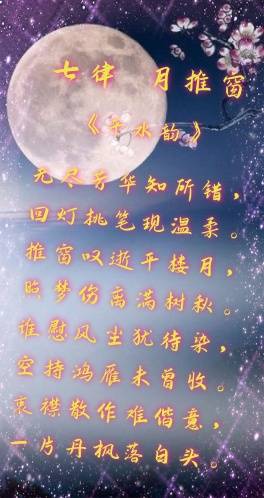 七律 月推窗
《平水韵》
无尽芳华知所错，
回灯挑笔现温柔。
推窗叹逝平楼月，
昫梦伤离满树秋。
谁慰风尘犹待染，
空持鸿雁未曾收。
衷襟散作难偕意，
一片丹枫落白头。